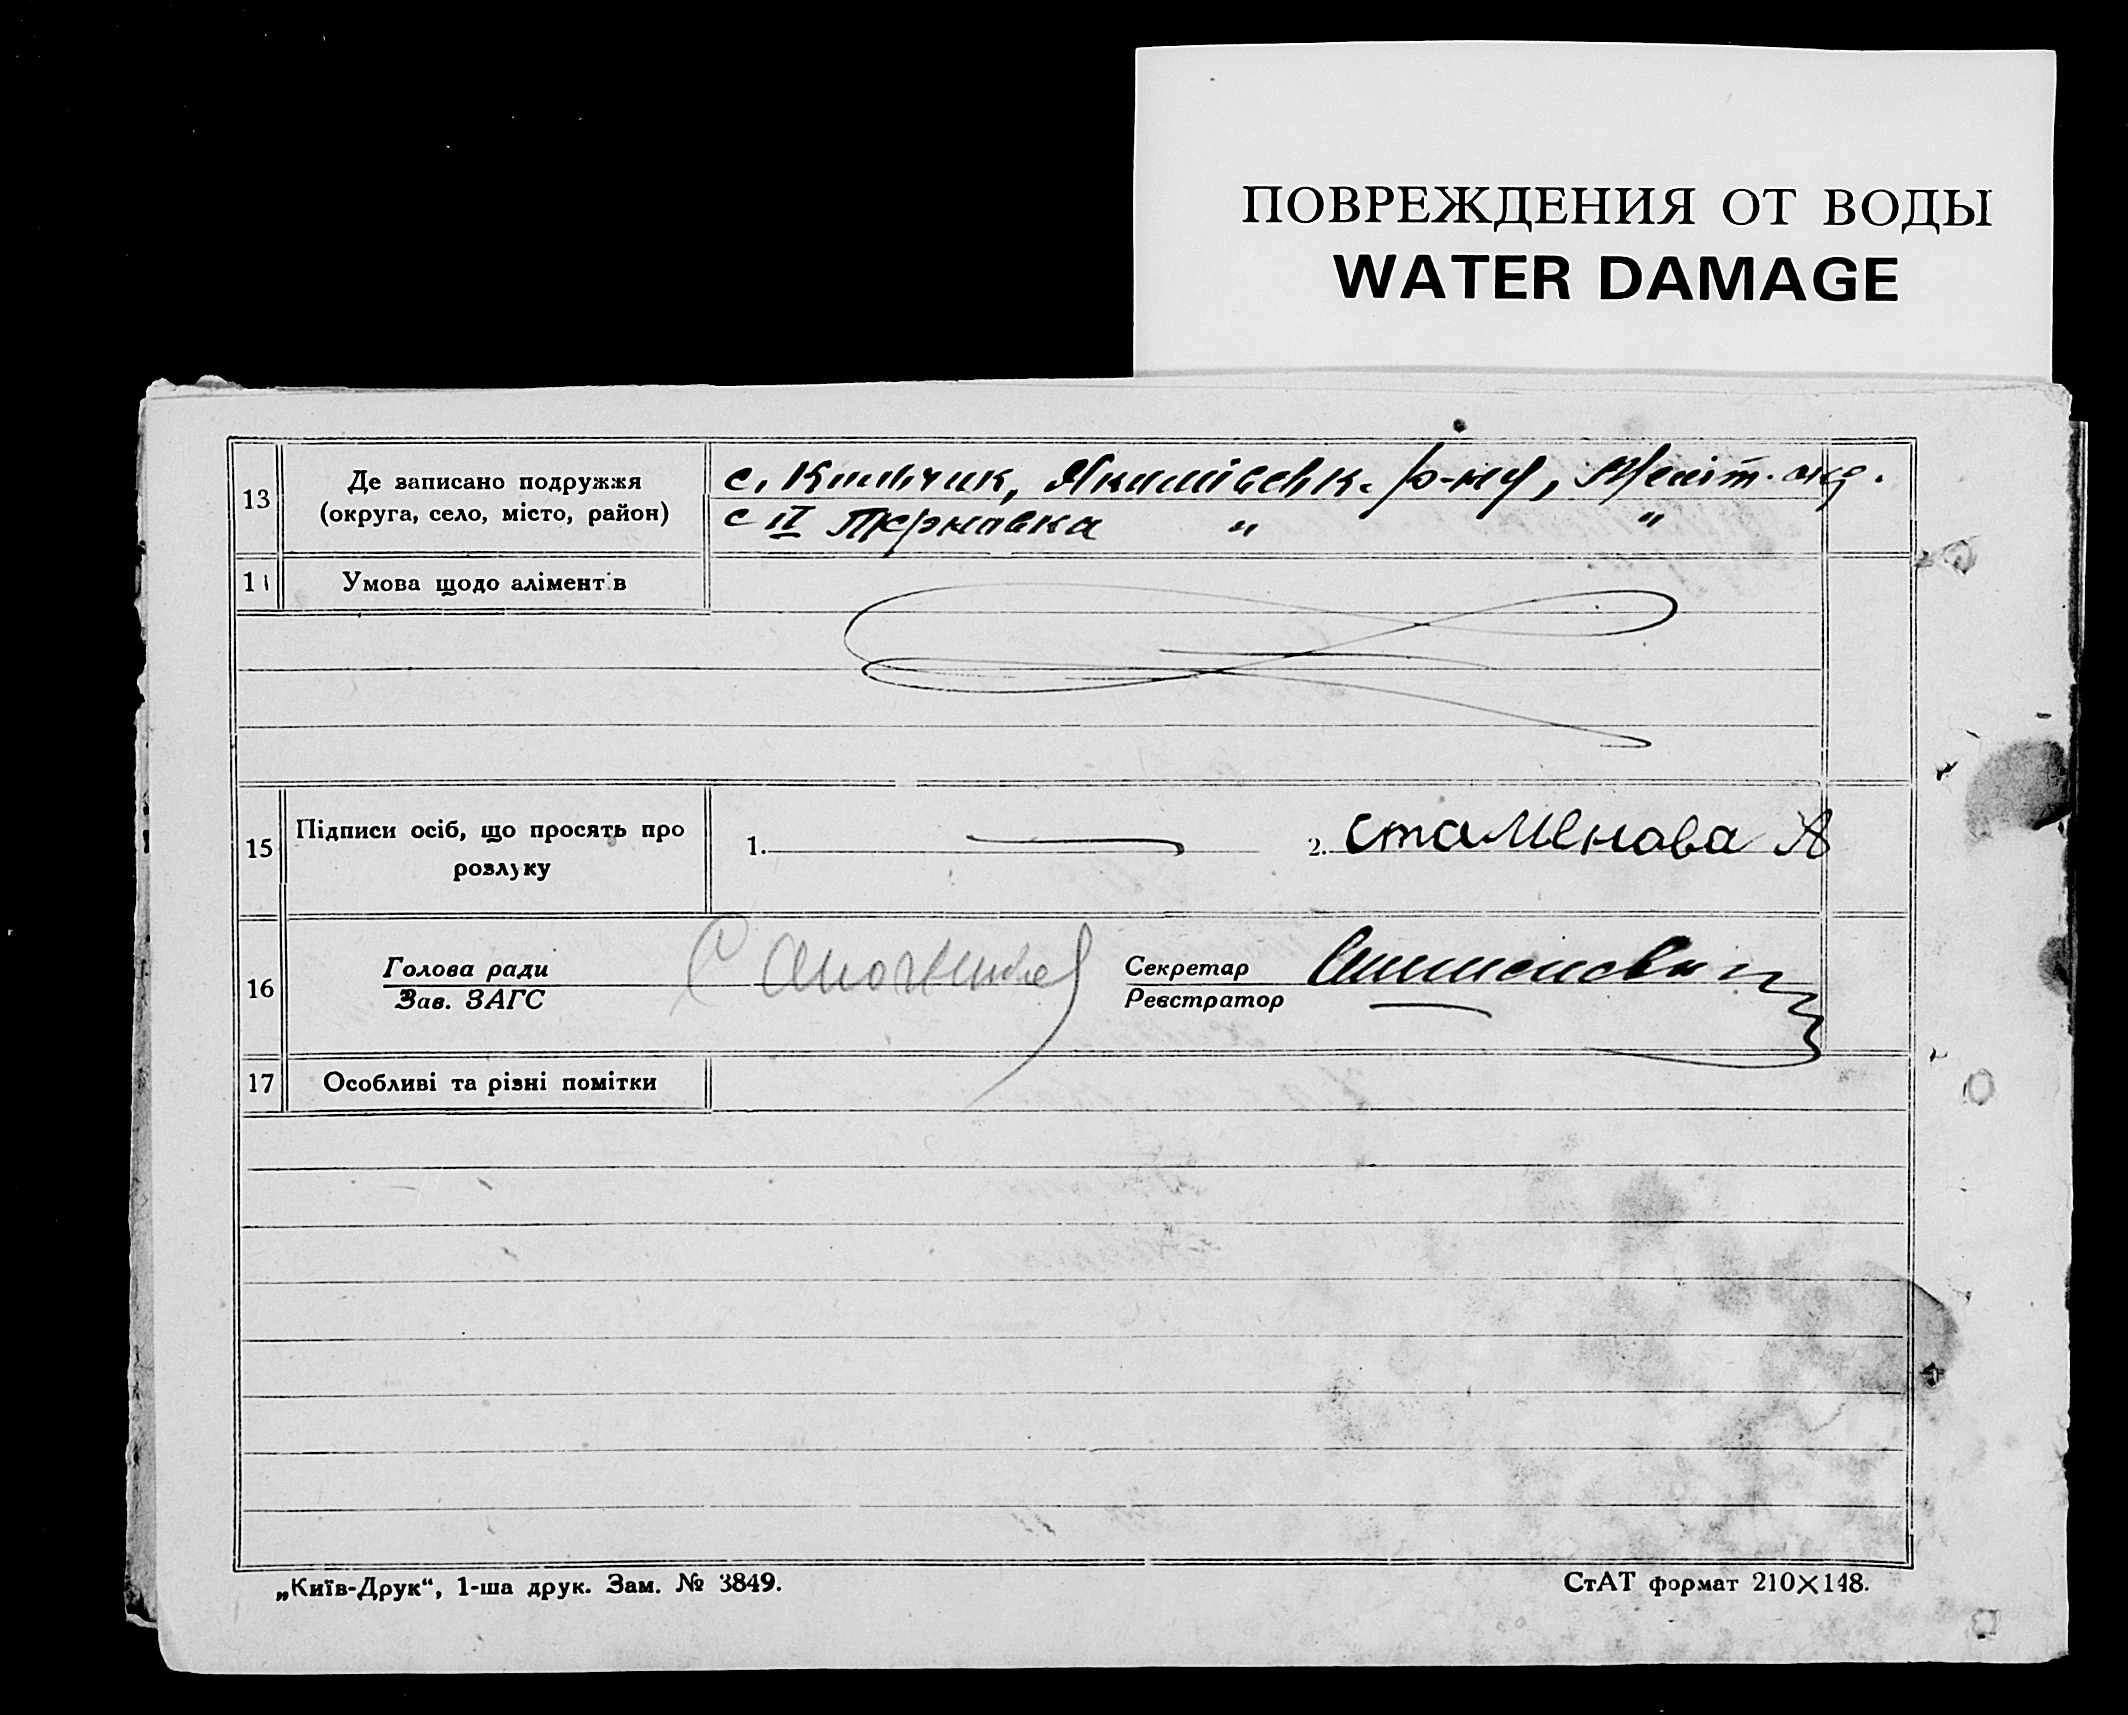 ПОВРЕЖДЕНИЯ ОТ ВОДЫ
WATER DAMAGE
13 Де записано подружжя
(округа, село, місто, район)
с. Кильчик, Якимівськ. р-ну, Меліт. окр.
с II Тернавка " "
1 Умова щодо алімент в
15 Підписи осіб, що просять про
розлуку
1. 2. Стаменова А
16 Голова ради
Зав. ЗАГС
Секретар
Реєстратор
17 Особливі та різні помітки
„Київ-Друк“, 1-ша друк. Зам. № 3849. СтАТ формат 210×148.